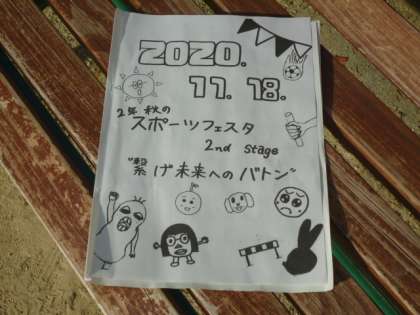 2020.
11. 18.
2年 秋の
スポーツフェスタ
2nd Stage
"繋げ未来へのバトン"